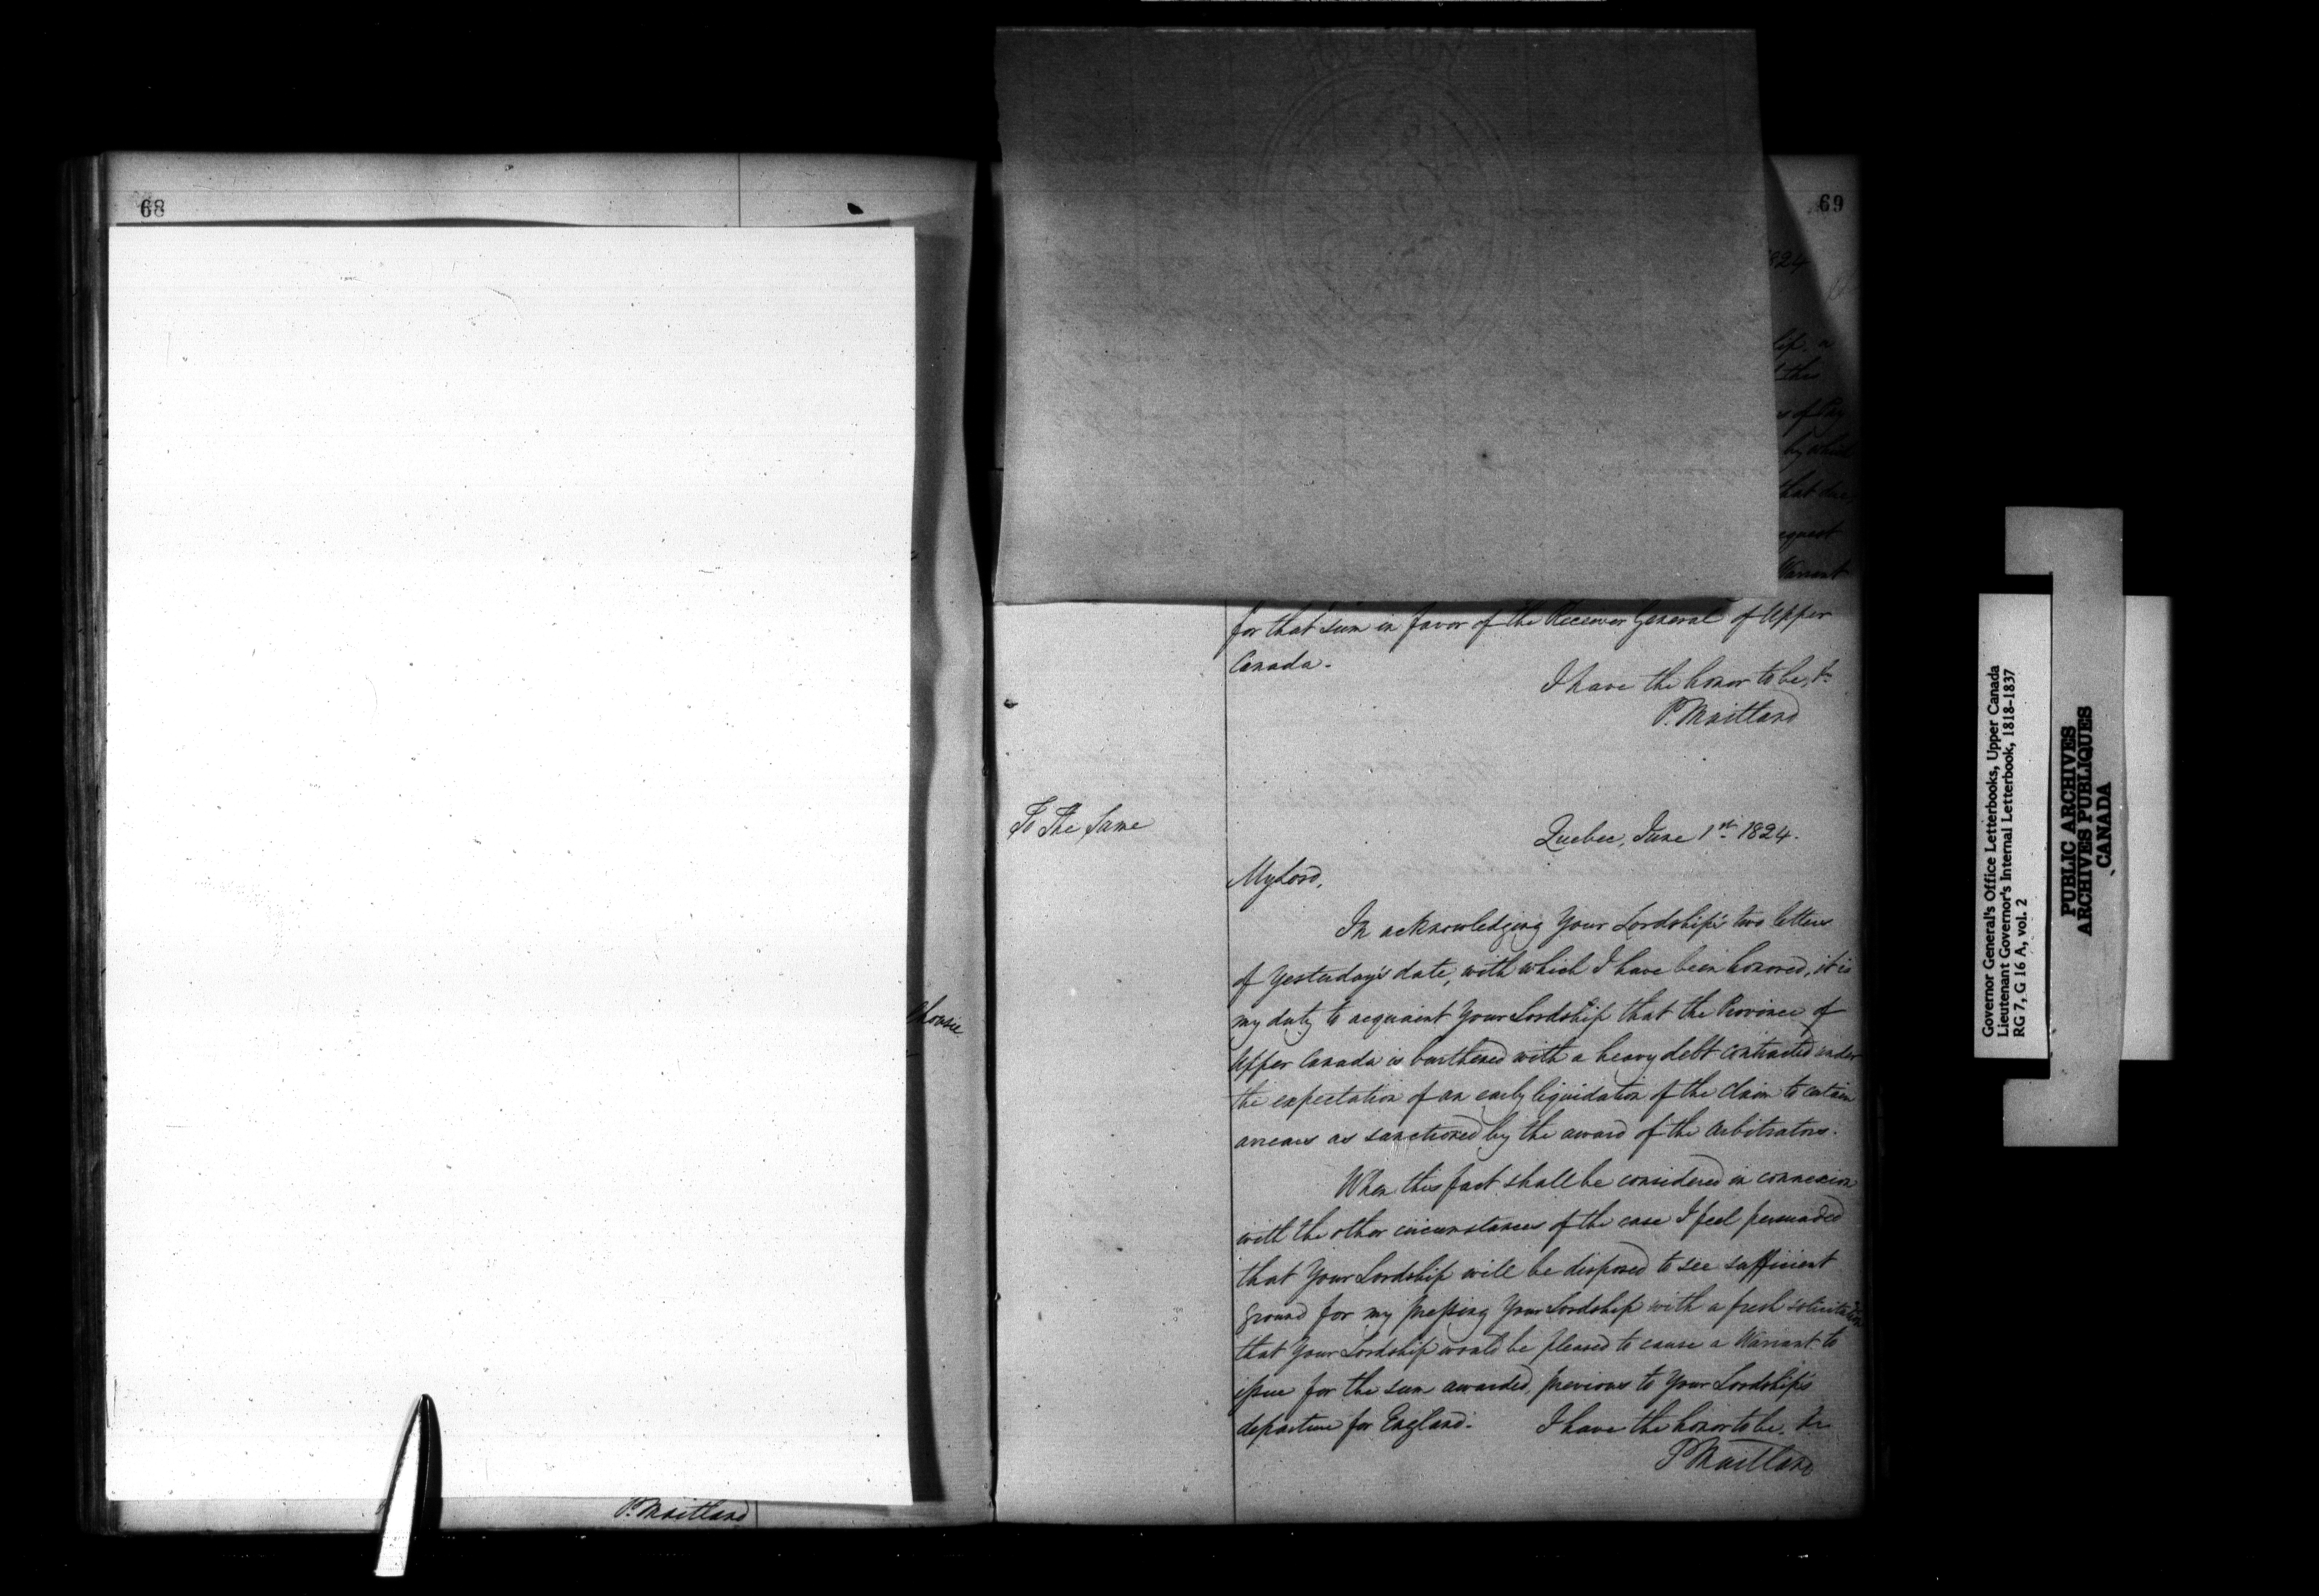 68
P. Maitland
69
for that sum in favor of the Receiver General of Upper
Canada.
I have the honor to be, &c
P. Maitland
To The Same
Quebec, June 1st 1824.
My Lord,
In acknowledging Your Lordship's two letters
of Yesterday's date, with which I have been honored, it is
my duty to acquaint Your Lordship that the Province of
Upper Canada is burthened with a heavy debt contracted under
the expectation of an early liquidation of the claim to certain
arrears as sanctioned by the award of the Arbitrators.
When this fact shall be considered in connexion
with the other circumstances of the case I feel persuaded
that Your Lordship will be disposed to see sufficient
ground for my pressing Your Lordship with a fresh solicitation
that Your Lordship would be pleased to cause a Warrant to
issue for the sum awarded, previous to Your Lordship's
departure for England. I have the honor to be, &c
P Maitland
Governor General's Office Letterbooks, Upper Canada
Lieutenant Governor's Internal Letterbook, 1818-1837
RG 7, G 16 A, vol. 2
PUBLIC ARCHIVES
ARCHIVES PUBLIQUES
CANADA